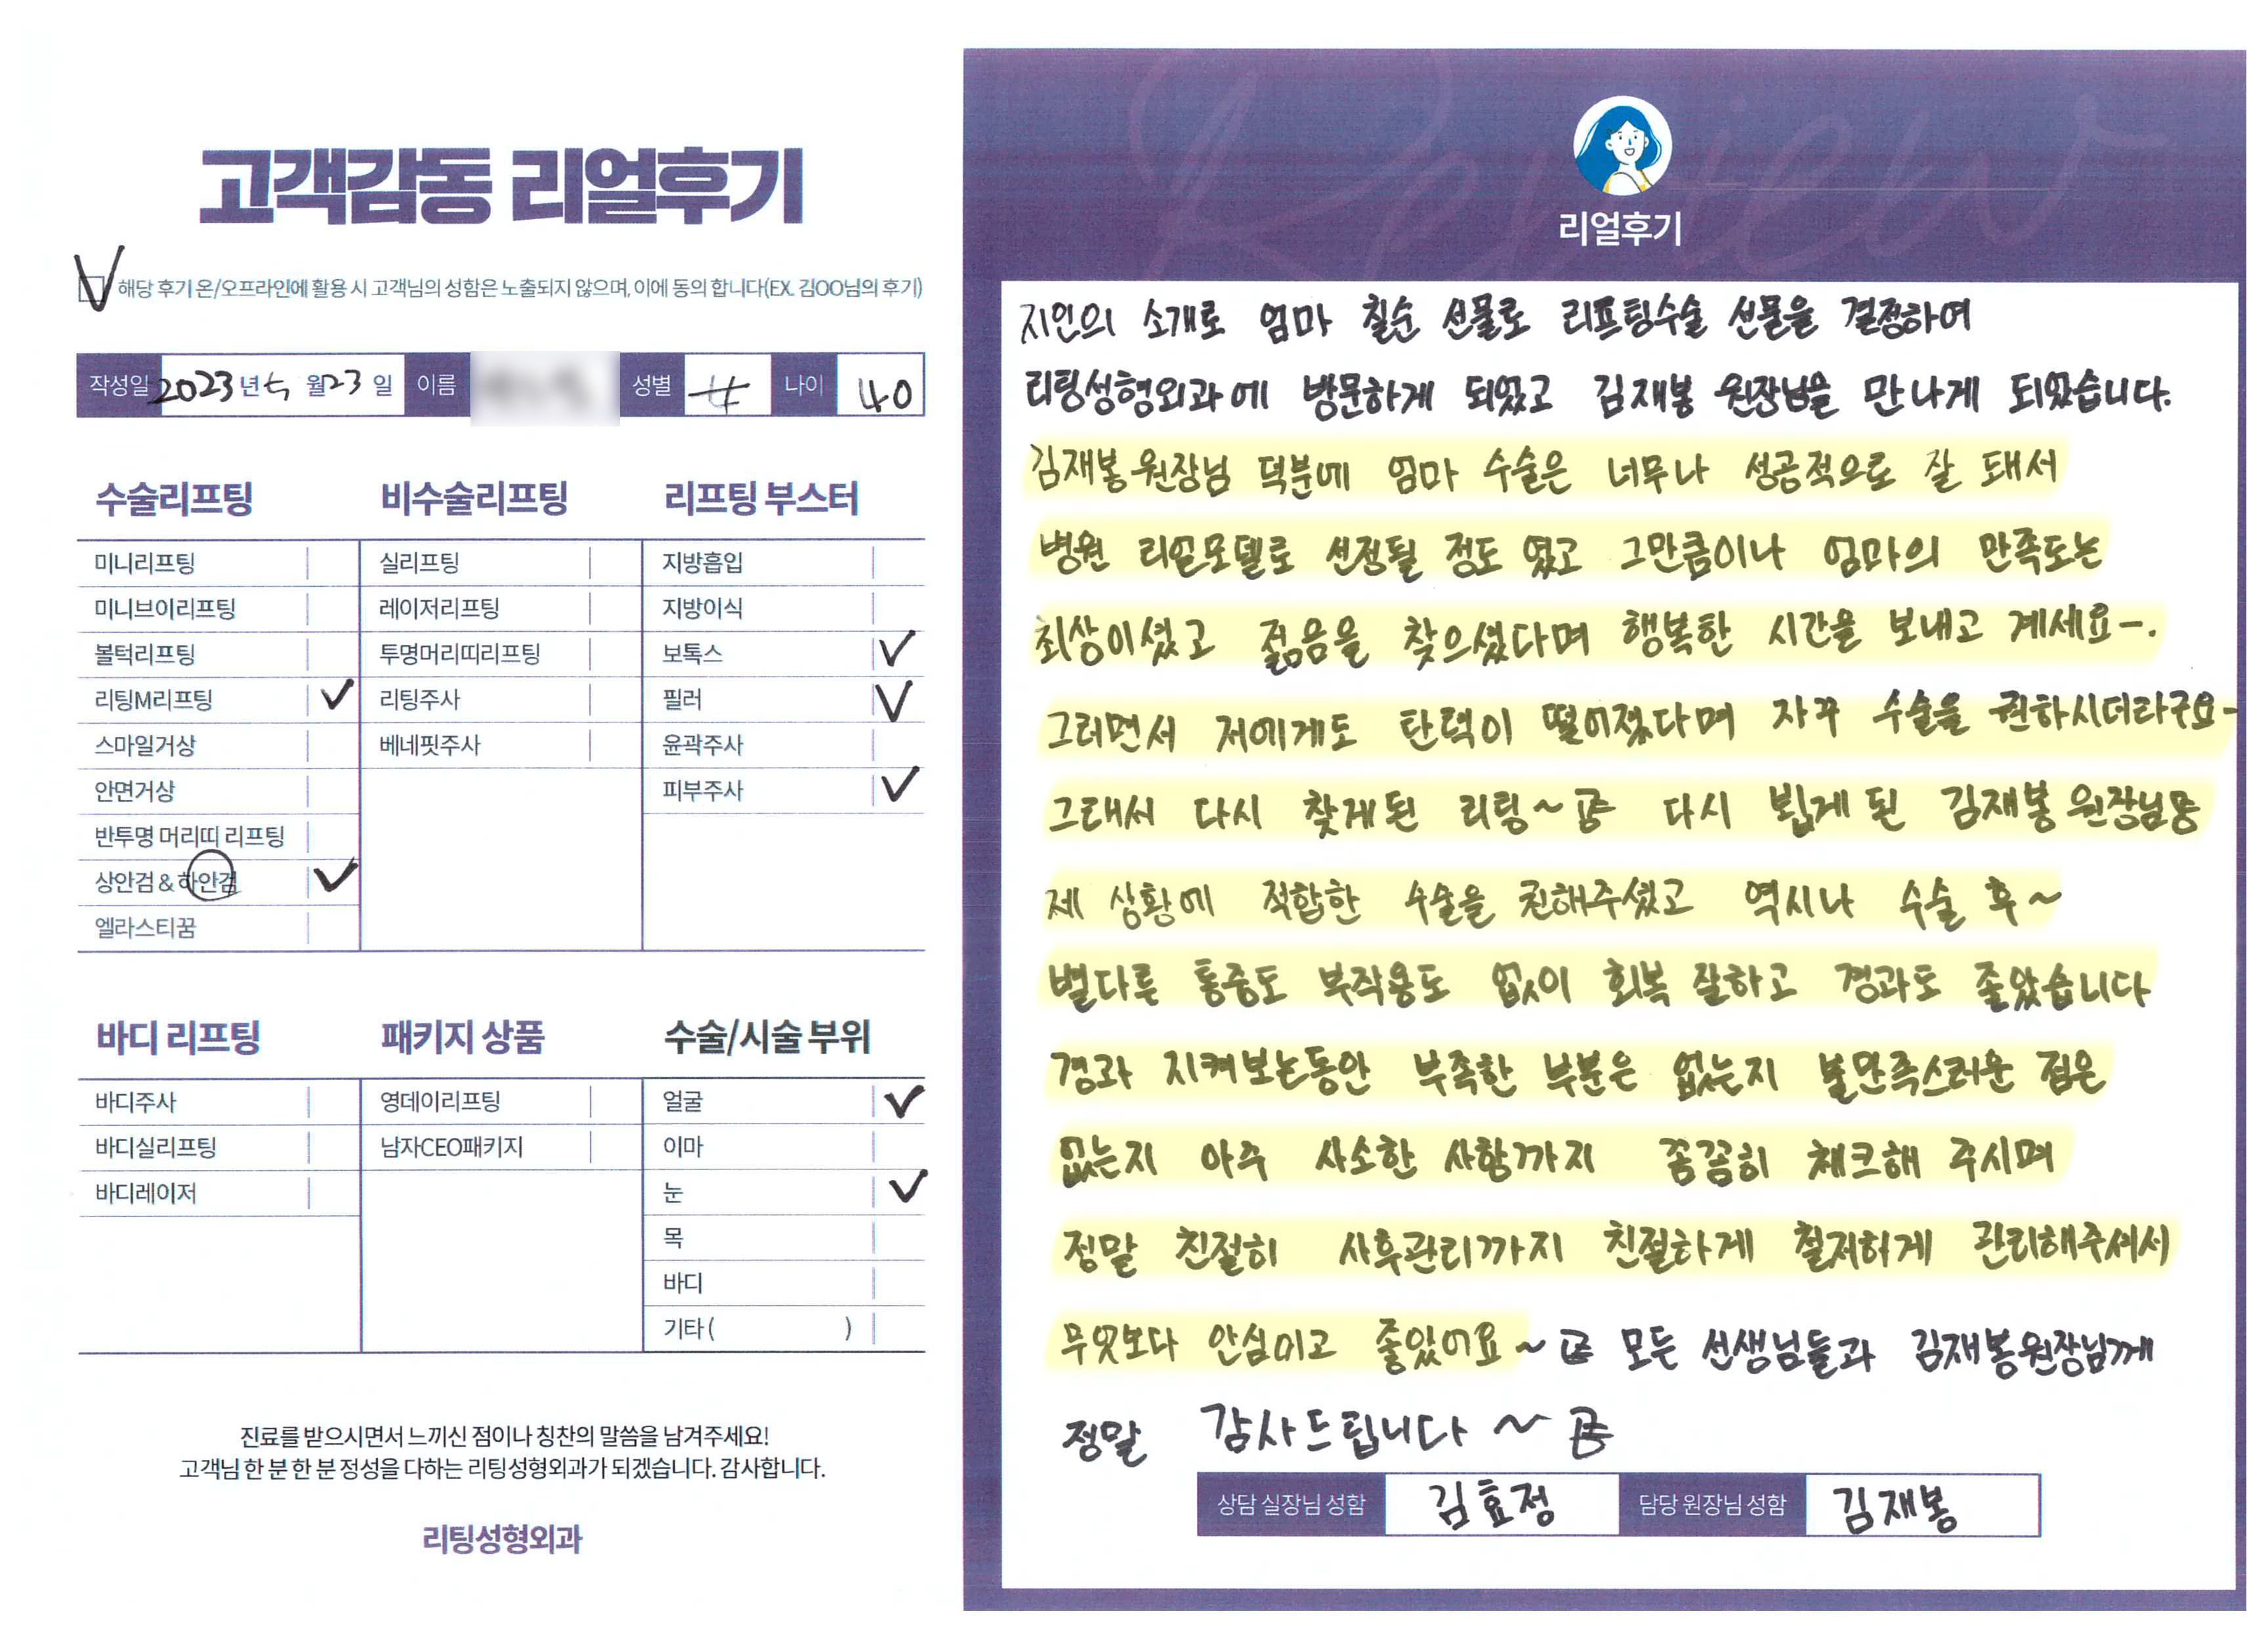 고객감동 리얼후기
해당 후기 온/오프라인에 활용 시 고객님의 성함은 노출되지 않으며, 이에 동의 합니다(EX. 김OO님의 후기)
작성일 2023 년 5 월 23 일 이름 성별 女 나이 40
수술리프팅
미니리프팅
미니브이리프팅
볼턱리프팅
리팅M리프팅
스마일거상
안면거상
반투명 머리띠 리프팅
상안검 & 하안검
엘라스티꿈
비수술리프팅
실리프팅
레이저리프팅
투명머리띠리프팅
리팅주사
베네핏주사
리프팅 부스터
지방흡입
지방이식
보톡스
필러
윤곽주사
피부주사
바디 리프팅
바디주사
바디실리프팅
바디레이저
패키지 상품
영데이리프팅
남자CEO패키지
수술/시술 부위
얼굴
이마
눈
목
바디
기타 ( )
진료를 받으시면서 느끼신 점이나 칭찬의 말씀을 남겨주세요!
고객님 한 분 한 분 정성을 다하는 리팅성형외과가 되겠습니다. 감사합니다.
리팅성형외과
Review
리얼후기
지인의 소개로 엄마 칠순 선물로 리프팅수술 선물을 결정하여
리팅성형외과에 방문하게 되었고 김재봉 원장님을 만나게 되었습니다.
김재봉 원장님 덕분에 엄마 수술은 너무나 성공적으로 잘 돼서
병원 리얼모델로 선정될 정도 였고 그만큼이나 엄마의 만족도는
최상이셨고 젊음을 찾으셨다며 행복한 시간을 보내고 계세요-.
그러면서 저에게도 탄력이 떨어졌다며 자꾸 수술을 권하시더라구요-
그래서 다시 찾게된 리팅~ 다시 뵙게 된 김재봉 원장님㉦
제 상황에 적합한 수술을 권해주셨고 역시나 수술 후~
별다른 통증도 부작용도 없이 회복 잘하고 경과도 좋았습니다
경과 지켜보는동안 부족한 부분은 없는지 불만족스러운 점은
없는지 아주 사소한 사항까지 꼼꼼히 체크해 주시며
정말 친절히 사후관리까지 친절하게 철저하게 관리해주셔서
무엇보다 안심이고 좋았어요~ 모든 선생님들과 김재봉원장님께
정말 감사드립니다 ~
상담 실장님 성함 김효정 담당 원장님 성함 김재봉